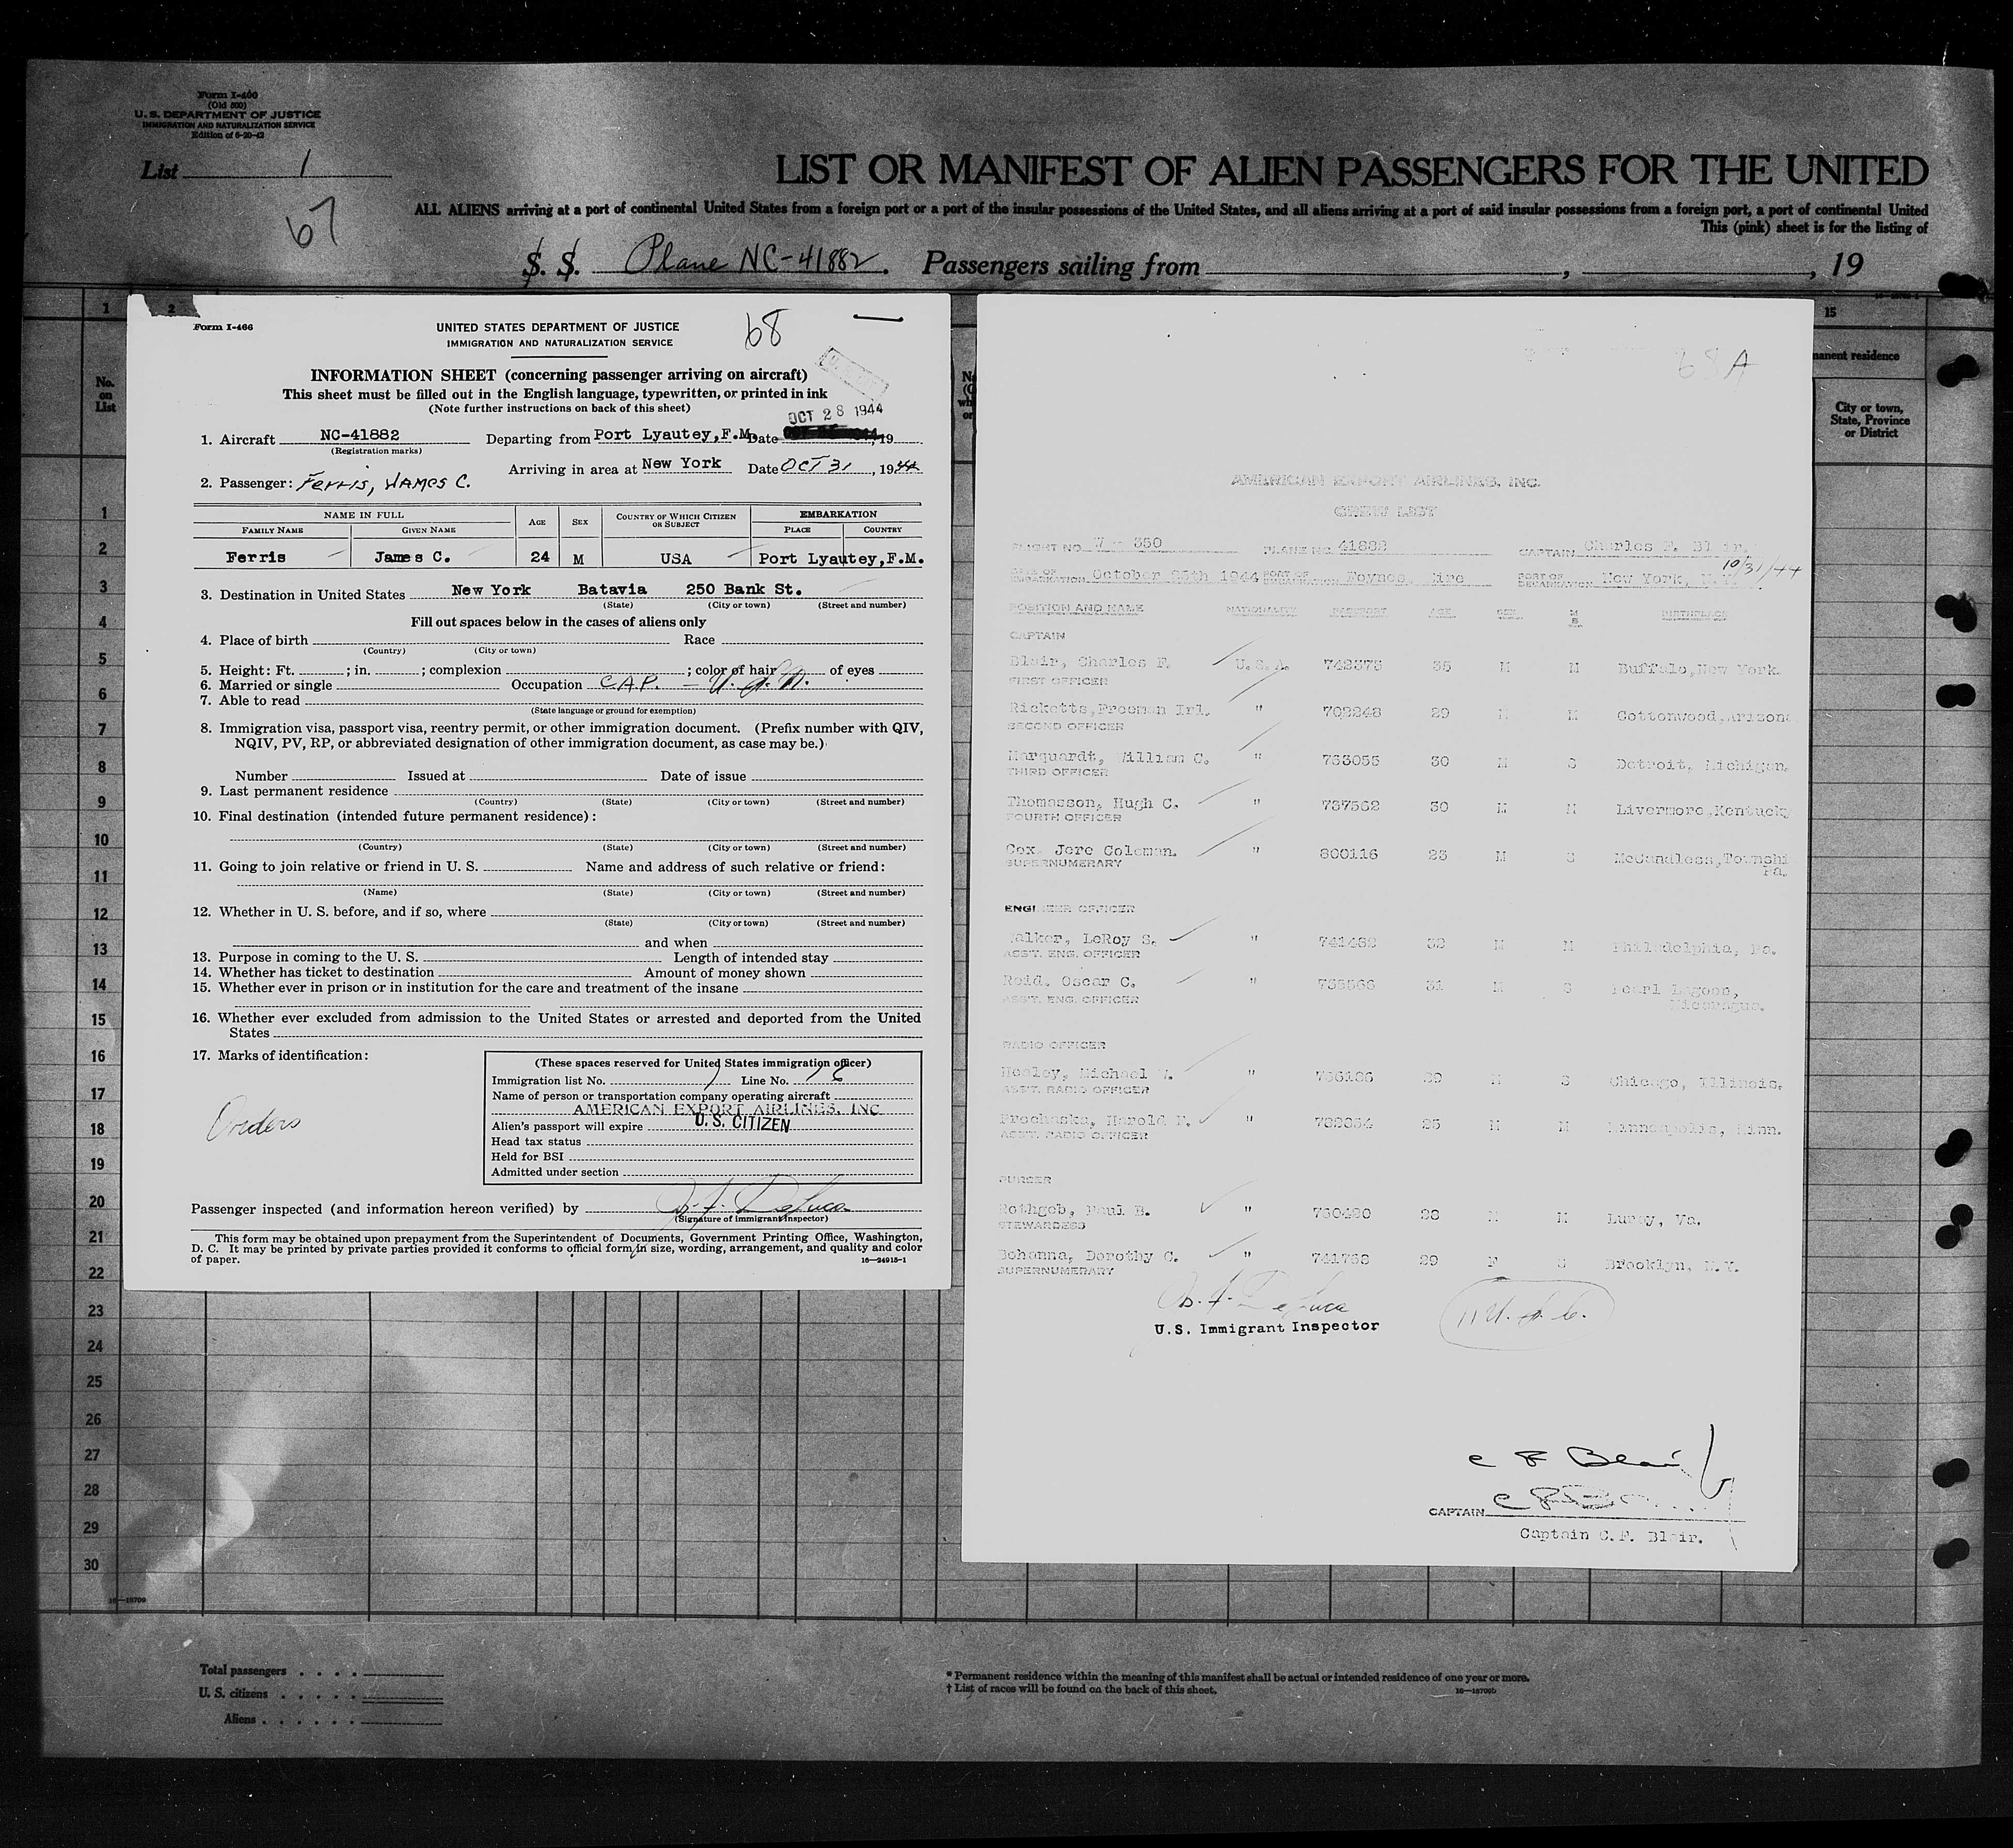 Form I-400
(Old 500)
U. S. DEPARTMENT OF JUSTICE
IMMIGRATION AND NATURALIZATION SERVICE
Edition of 6-20-42
List 1
67
LIST OR MANIFEST OF ALIEN PASSENGERS FOR THE UNITED
ALL ALIENS arriving at a port of continental United States from a foreign port or a port of the insular possessions of the United States, and all aliens arriving at a port of said insular possessions from a foreign port, a port of continental United
This (pink) sheet is for the listing of
S. S. Plane NC-41882. Passengers sailing from , , 19
1 2 15
No. on List
manent residence
City or town, State, Province or District
Form I-466
UNITED STATES DEPARTMENT OF JUSTICE
IMMIGRATION AND NATURALIZATION SERVICE
68
INFORMATION SHEET (concerning passenger arriving on aircraft)
This sheet must be filled out in the English language, typewritten, or printed in ink
(Note further instructions on back of this sheet)
OCT 28 1944
1. Aircraft NC-41882 Departing from Port Lyautey,F.M. Date , 19
(Registration marks)
Arriving in area at New York Date OCT 31, 1944
2. Passenger: Ferris, James C.
NAME IN FULL AGE SEX COUNTRY OF WHICH CITIZEN OR SUBJECT EMBARKATION
FAMILY NAME GIVEN NAME PLACE COUNTRY
Ferris James C. 24 M USA Port Lyautey,F.M.
3. Destination in United States New York Batavia 250 Bank St.
(State) (City or town) (Street and number)
Fill out spaces below in the cases of aliens only
4. Place of birth Race
(Country) (City or town)
5. Height: Ft. ; in. ; complexion ; color of hair of eyes
6. Married or single Occupation CAP. - U.S.N.
7. Able to read
(State language or ground for exemption)
8. Immigration visa, passport visa, reentry permit, or other immigration document. (Prefix number with QIV,
NQIV, PV, RP, or abbreviated designation of other immigration document, as case may be.)
Number Issued at Date of issue
9. Last permanent residence
(Country) (State) (City or town) (Street and number)
10. Final destination (intended future permanent residence):
(Country) (State) (City or town) (Street and number)
11. Going to join relative or friend in U. S. Name and address of such relative or friend:
(Name) (State) (City or town) (Street and number)
12. Whether in U. S. before, and if so, where
(State) (City or town) (Street and number)
and when
13. Purpose in coming to the U. S. Length of intended stay
14. Whether has ticket to destination Amount of money shown
15. Whether ever in prison or in institution for the care and treatment of the insane
16. Whether ever excluded from admission to the United States or arrested and deported from the United
States
17. Marks of identification:
Orders
(These spaces reserved for United States immigration officer)
Immigration list No. 1 Line No.
Name of person or transportation company operating aircraft
AMERICAN EXPORT AIRLINES, INC
Alien's passport will expire U.S. CITIZEN
Head tax status
Held for BSI
Admitted under section
Passenger inspected (and information hereon verified) by
(Signature of immigrant inspector)
This form may be obtained upon prepayment from the Superintendent of Documents, Government Printing Office, Washington,
D. C. It may be printed by private parties provided it conforms to official form in size, wording, arrangement, and quality and color
of paper. 16—24915-1
68A
AMERICAN EXPORT AIRLINES, INC.
CREW LIST
FLIGHT NO. W - 350 PLANE NO. 41882 CAPTAIN Charles F. Blair.
10/31/44
DATE OF EMBARKATION October 1944 PORT OF EMBARKATION Foynes, Eire PORT OF DEBARKATION New York, N.Y.
POSITION AND NAME NATIONALITY PASSPORT AGE SEX M S BIRTHPLACE
CAPTAIN
Blair, Charles F. U.S.A. 742575 35 M M Buffalo,New York.
FIRST OFFICER
Ricketts,Freeman Irl. " 702248 29 M M Cottonwood,Arizona
SECOND OFFICER
Marquardt, William C. " 733055 30 M S Detroit, Michigan.
THIRD OFFICER
Thomasson, Hugh C. " 737562 30 M M Livermore,Kentucky
FOURTH OFFICER
Cox, Jere Coleman. " 800116 23 M S McCandless,Townshi
SUPERNUMERARY Pa.
ENGINEER OFFICER
Walker, LeRoy S. " 741482 32 M M Philadelphia, Pa.
ASS'T. ENG. OFFICER
Reid, Oscar C. " 31 M S Pearl Lagoon,
ASS'T. ENG. OFFICER Nicaragua.
RADIO OFFICER
Healey, Michael " 29 M S Chicago, Illinois.
ASS'T. RADIO OFFICER
Prochaska, Harold F. " 25 M M Minneapolis, Minn.
ASS'T. RADIO OFFICER
PURSER
Rothgeb, Paul B. " 28 M M Luray, Va.
STEWARDESS
Bohanna, Dorothy C. " 741768 29 F S Brooklyn, N.Y.
SUPERNUMERARY
U.S. Immigrant Inspector
11 U.S.C.
C F Blair
CAPTAIN
Captain C.F. Blair.
1
2
3
4
5
6
7
8
9
10
11
12
13
14
15
16
17
18
19
20
21
22
23
24
25
26
27
28
29
30
16—18709
Total passengers . . . .
U. S. citizens . . . . .
Aliens . . . . . .
* Permanent residence within the meaning of this manifest shall be actual or intended residence of one year or more.
† List of races will be found on the back of this sheet. 16—18709b